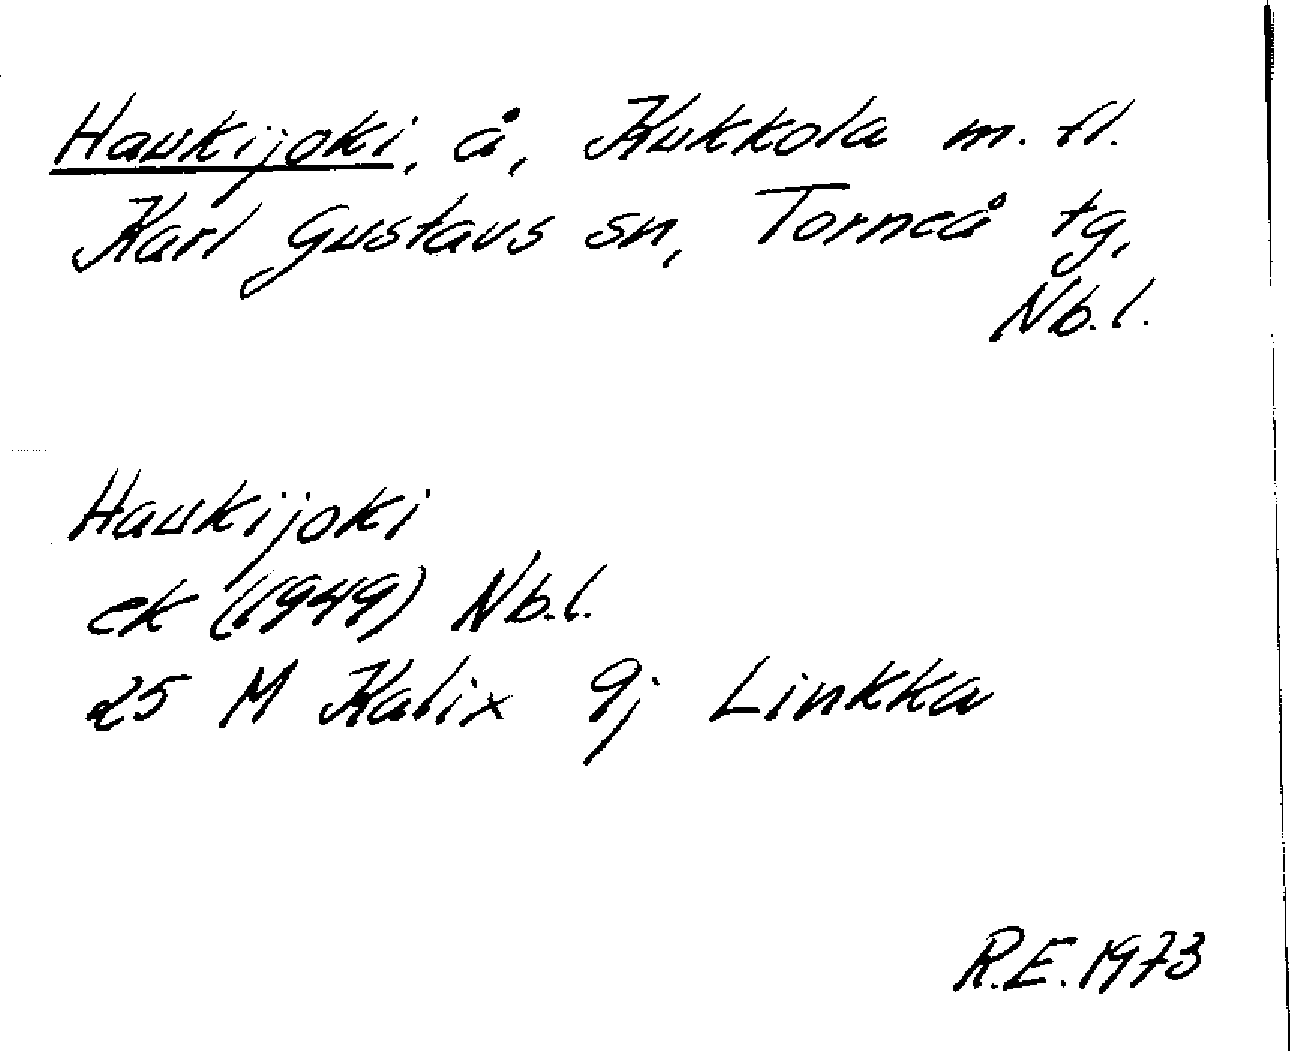 Haukijoki, å, Kukkola m. fl.
Karl Gustavs sn, Torneå tg,
Nb.l.
Haukijoki
ek (1949) Nb.l.
25 M Kalix 9j Linkka
R.E. 1973